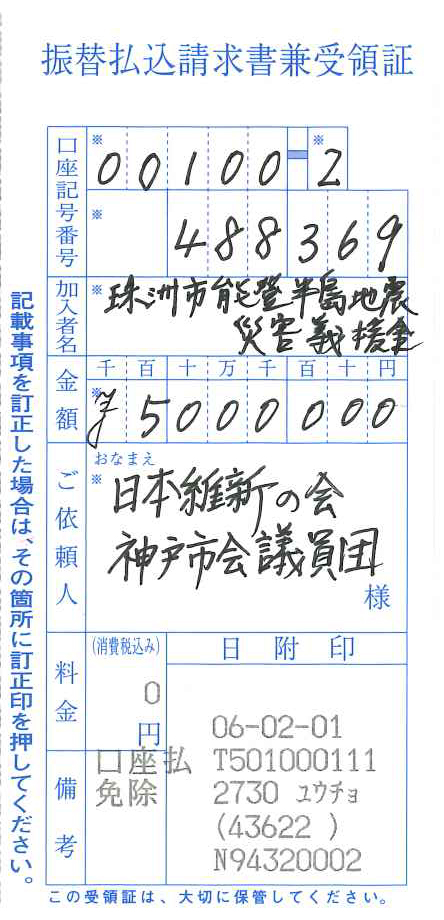 振替払込請求書兼受領証
口座記号番号
※ 00100-※ 2
※ 488369
加入者名
※ 珠洲市能登半島地震
災害義援金
金額
千 百 十 万 千 百 十 円
※ ¥5000000
ご依頼人
おなまえ
※ 日本維新の会
神戸市会議員団
様
料金
(消費税込み)
0
円
日附印
備考
口座払
免除
06-02-01
T501000111
2730 ユウチョ
(43622 )
N94320002
記載事項を訂正した場合は、その箇所に訂正印を押してください。
この受領証は、大切に保管してください。